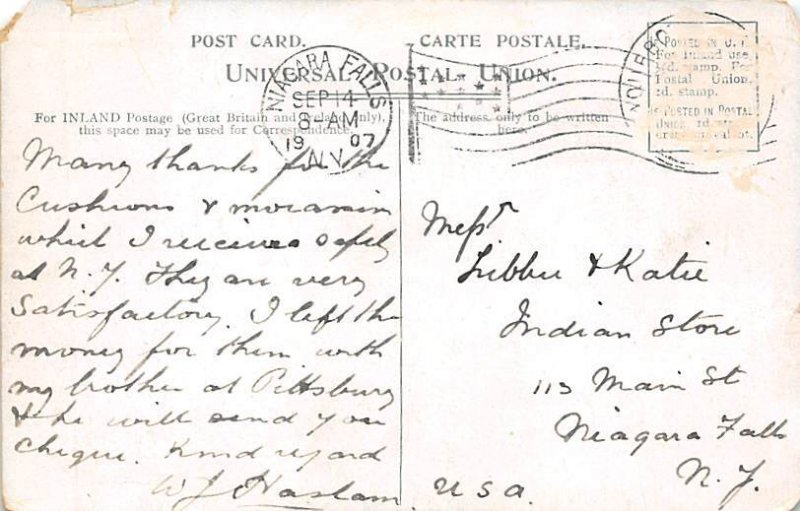 POST CARD. CARTE POSTALE.
UNIVERSAL POSTAL UNION.
For INLAND Postage (Great Britain and Ireland only),
this space may be used for Correspondence.
The address only to be written
here.
NIAGARA FALLS
SEP 14
8-AM
19 07
N.Y.
Postal Union,
1d. stamp.
Many thanks for the
Cushions &
which I received safely
at N.Y. They are very
Satisfactory. I left the
money for them with
my brother at Pittsburg
& he will send you
cheque. Kind regard
W J Haslam
Messrs
Libbee & Katie
Indian Store
113 Main St
Niagara Falls
N. Y.
U S A.